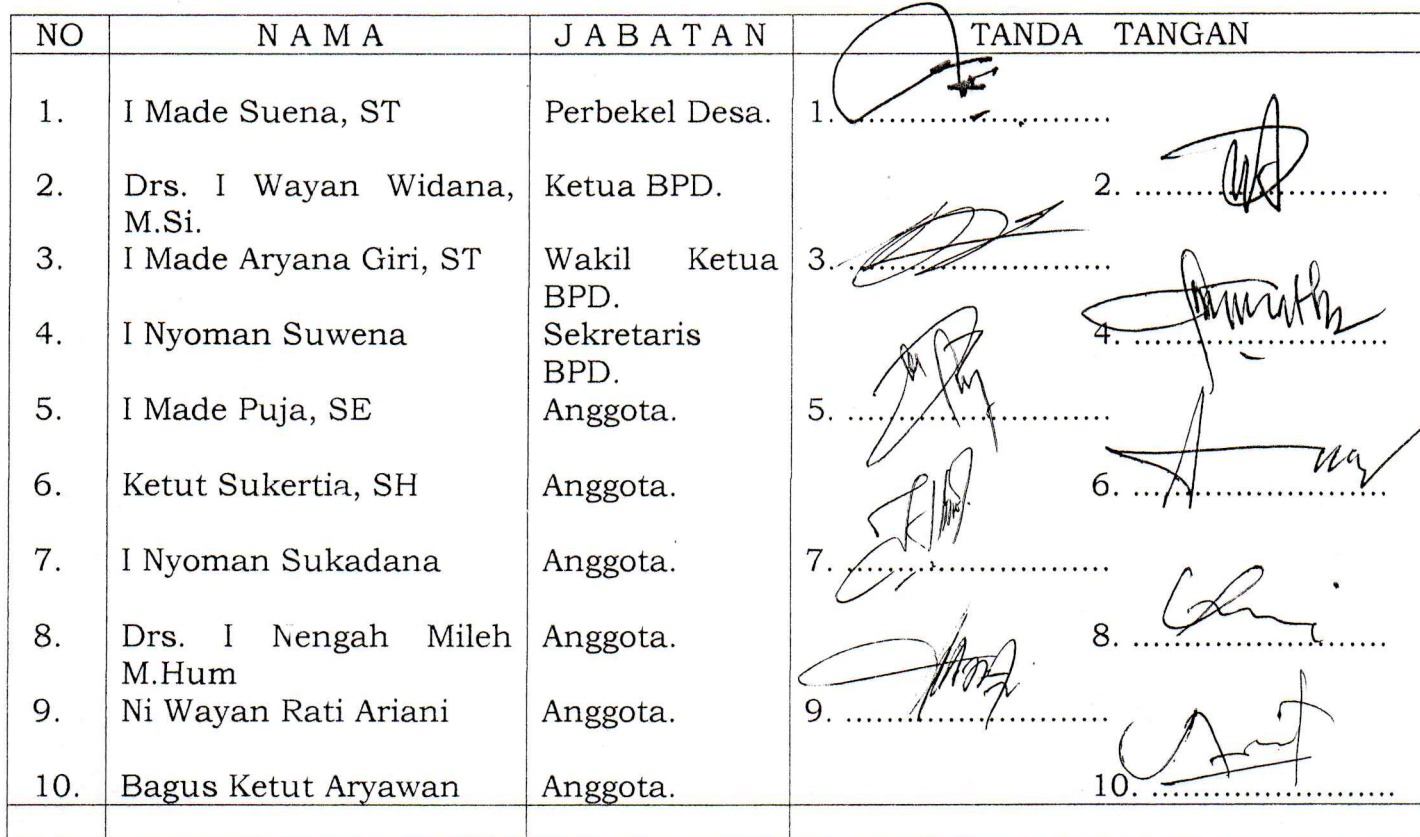 NO N A M A J A B A T A N TANDA TANGAN
1. I Made Suena, ST Perbekel Desa. 1. ..........................
2. Drs. I Wayan Widana, Ketua BPD. 2. ..........................
M.Si.
3. I Made Aryana Giri, ST Wakil Ketua 3. ..........................
BPD.
4. I Nyoman Suwena Sekretaris 4. ..........................
BPD.
5. I Made Puja, SE Anggota. 5. ..........................
6. Ketut Sukertia, SH Anggota. 6. ..........................
7. I Nyoman Sukadana Anggota. 7. ..........................
8. Drs. I Nengah Mileh Anggota. 8. ..........................
M.Hum
9. Ni Wayan Rati Ariani Anggota. 9. ..........................
10. Bagus Ketut Aryawan Anggota. 10. ..........................